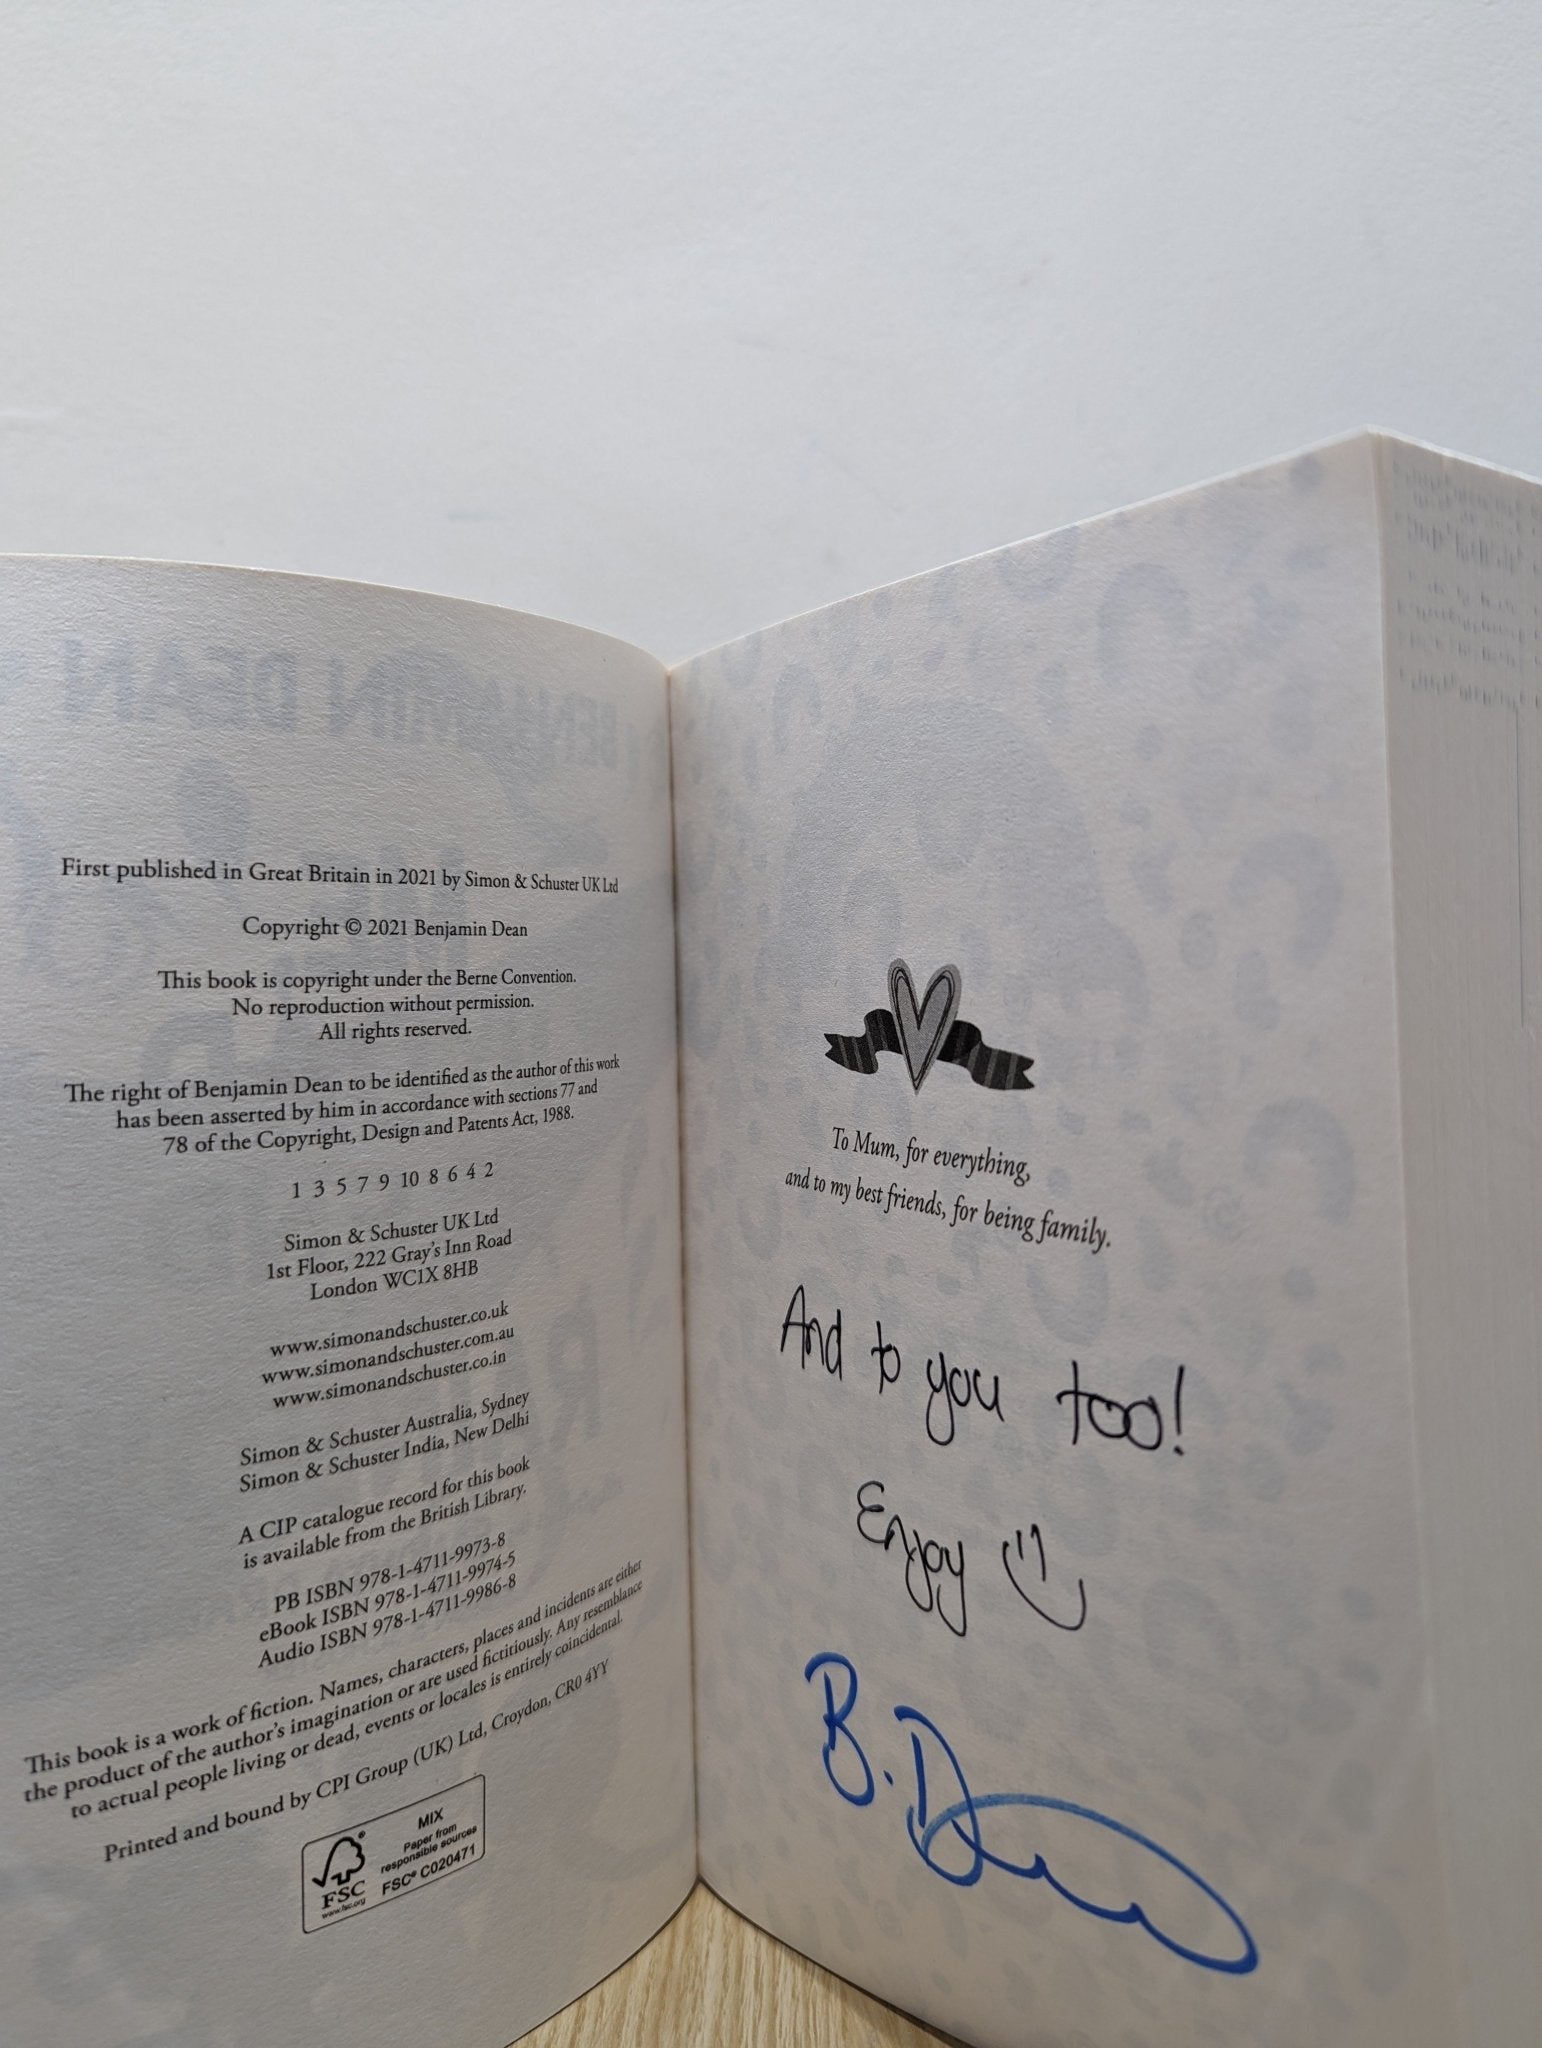 First published in Great Britain in 2021 by Simon & Schuster UK Ltd
Copyright © 2021 Benjamin Dean
This book is copyright under the Berne Convention.
No reproduction without permission.
All rights reserved.
The right of Benjamin Dean to be identified as the author of this work
has been asserted by him in accordance with sections 77 and
78 of the Copyright, Design and Patents Act, 1988.
1 3 5 7 9 10 8 6 4 2
Simon & Schuster UK Ltd
1st Floor, 222 Gray's Inn Road
London WC1X 8HB
www.simonandschuster.co.uk
www.simonandschuster.com.au
www.simonandschuster.co.in
Simon & Schuster Australia, Sydney
Simon & Schuster India, New Delhi
A CIP catalogue record for this book
is available from the British Library.
PB ISBN 978-1-4711-9973-8
eBook ISBN 978-1-4711-9974-5
Audio ISBN 978-1-4711-9986-8
This book is a work of fiction. Names, characters, places and incidents are either
the product of the author's imagination or are used fictitiously. Any resemblance
to actual people living or dead, events or locales is entirely coincidental.
Printed and bound by CPI Group (UK) Ltd, Croydon, CR0 4YY
FSC®
www.fsc.org
MIX
Paper from
responsible sources
FSC® C020471
To Mum, for everything,
and to my best friends, for being family.
And to you too!
Enjoy
B. D